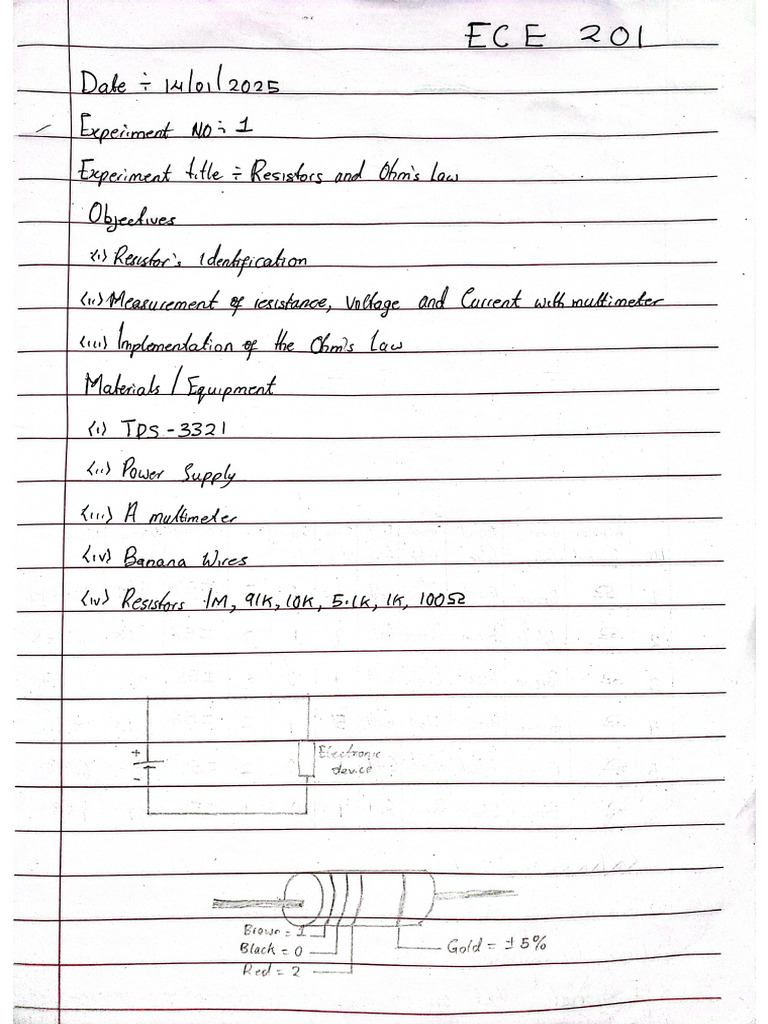 ECE 201
Date ÷ 14/01/2025
Experiment NO ÷ 1
Experiment title ÷ Resistors and Ohm's Law
Objectives
(i) Resistor's Identification
(ii) Measurement of resistance, Voltage and Current with multimeter
(iii) Implementation of the Ohm's Law
Materials / Equipment
(i) TPS-3321
(ii) Power Supply
(iii) A multimeter
(iv) Banana Wires
(iv) Resistors 1M, 91K, 10K, 5.1K, 1K, 100Ω
+
-
Electronic
device
Brown = 1
Black = 0
Red = 2
Gold = ±5%